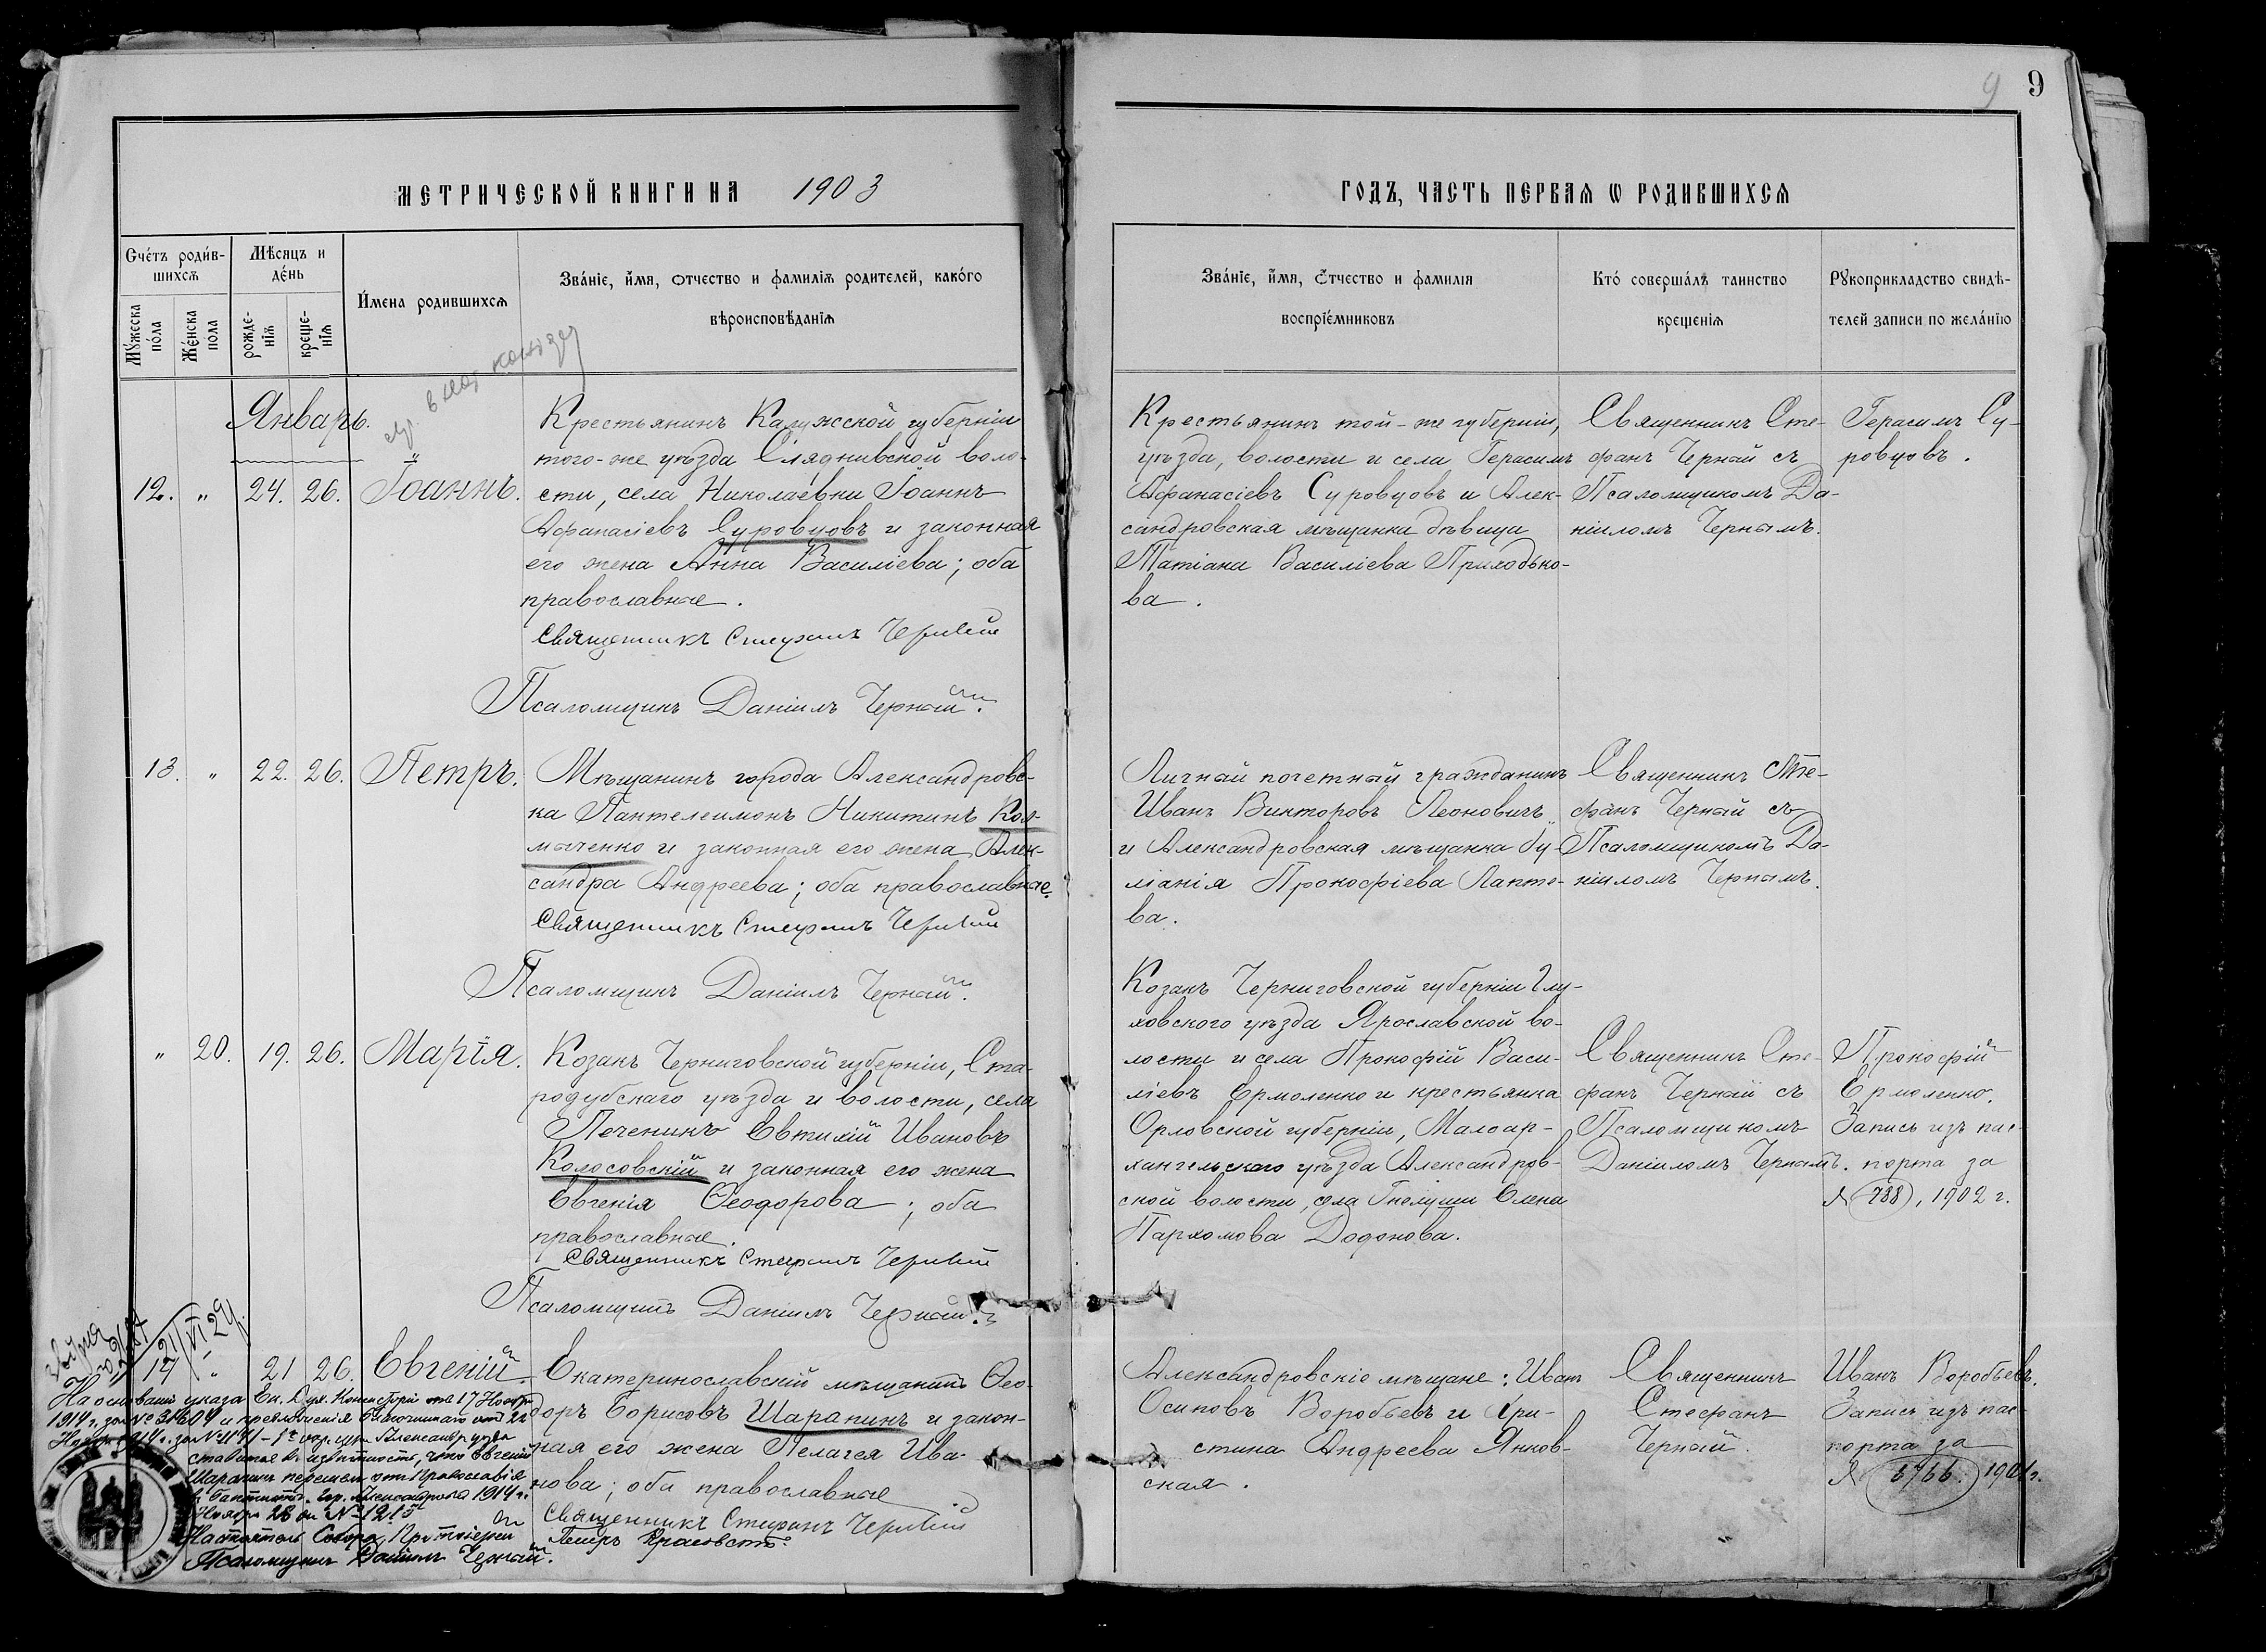 9 9
МЕТРИЧЕСКОЙ КНИГИ НА 1903
ГОДЪ, ЧАСТЬ ПЕРВАЯ Ѡ РОДИВШИХСЯ
Счетъ родив-
шихся
Мѣсяцъ и
день
Мужеска
пола
Женска
пола
рожде-
нія
креще-
нія
Имена родившихся
Званіе, имя, отчество и фамилія родителей, какого
вѣроисповѣданія
Званіе, имя, отчество и фамилія
воспріемниковъ
Кто совершалъ таинство
крещенія
Рукоприкладство свидѣ-
телей записи по желанію
Январь.
12. " 24. 26. Іоаннъ.
Крестьянинъ Калужской губерніи
того-же уѣзда Сляднивской воло-
сти, села Николаевки Іоаннъ
Афанасіевъ Суровцовъ и законная
его жена Анна Василіева; оба
православные.
Священникъ Стефанъ Черный
Псаломщикъ Даніилъ Черный.
Крестьянинъ той-же губерніи,
уѣзда, волости и села Герасимъ
Афанасіевъ Суровцовъ и Алек-
сандровская мѣщанка дѣвица
Татіана Василіева Приходько-
ва.
Священникъ Сте-
фанъ Черный съ
Псаломщикомъ Да-
ніиломъ Чернымъ.
Герасимъ Су-
ровцовъ.
13. " 22. 26. Петръ.
Мѣщанинъ города Александровс-
ка Пантелеимонъ Никитинъ Кол-
мыченко и законная его жена Алек-
сандра Андреева; оба православные.
Священникъ Стефанъ Черный
Псаломщикъ Даніилъ Черный.
Личный почетный гражданинъ
Иванъ Викторовъ Леоновичъ
и Александровская мѣщанка Іу-
ліанія Прокофіева Лапте-
ва.
Священникъ Сте-
фанъ Черный съ
Псаломщикомъ Да-
ніиломъ Чернымъ.
" 20. 19. 26. Марія.
Козакъ Черниговской губерніи, Ста-
родубскаго уѣзда и волости, села
Печеникъ Евтихій Ивановъ
Колосовскій и законная его жена
Евгенія Ѳеодорова; оба
православные.
Священникъ Стефанъ Черный
Псаломщикъ Даніилъ Черный.
Козакъ Черниговской губерніи Глу-
ховского уѣзда Ярославской во-
лости и села Прокофій Васи-
ліевъ Ермоленко и крестьянка
Орловской губерніи, Малоар-
хангельскаго уѣзда Александров-
ской волости, села Гнилуши Елена
Пархомова Додонова.
Священникъ Сте-
фанъ Черный съ
Псаломщикомъ
Даніиломъ Чернымъ.
Прокофій
Ермоленко.
Запись изъ пас-
порта за
№ 788, 1902 г.
21/VI 29
14 " 21 26. Евгеній.
Екатеринославскій мѣщанинъ Ѳео-
доръ Борисовъ Шарапинъ и закон-
ная его жена Пелагея Ива-
нова; оба православные.
Священникъ Стефанъ Черный
Александровскіе мѣщане: Иванъ
Осиповъ Воробьевъ и Хри-
стина Андреева Янков-
ская.
Священникъ
Стефанъ
Черный.
Иванъ Воробьевъ.
Запись изъ пас-
порта за
№ 6766. 1901 г.
На основаніи указа Ек. Дух. Консисторіи отъ 17 Ноября
1914 г. за № 31604 и предложенія Благочиннаго отъ 22
Ноября 1914 г. за № 1141 - 1го окр. Александр. уѣзда
ставится въ извѣстность, что Евгеній
Шарапинъ перешелъ отъ Православія
въ баптизмъ. Гор. Александровскъ 1914 г.
Ноября 28 дня № 1215
Настоятель Собора, Протоіерей Петръ
Псаломщикъ Даніилъ Черный.